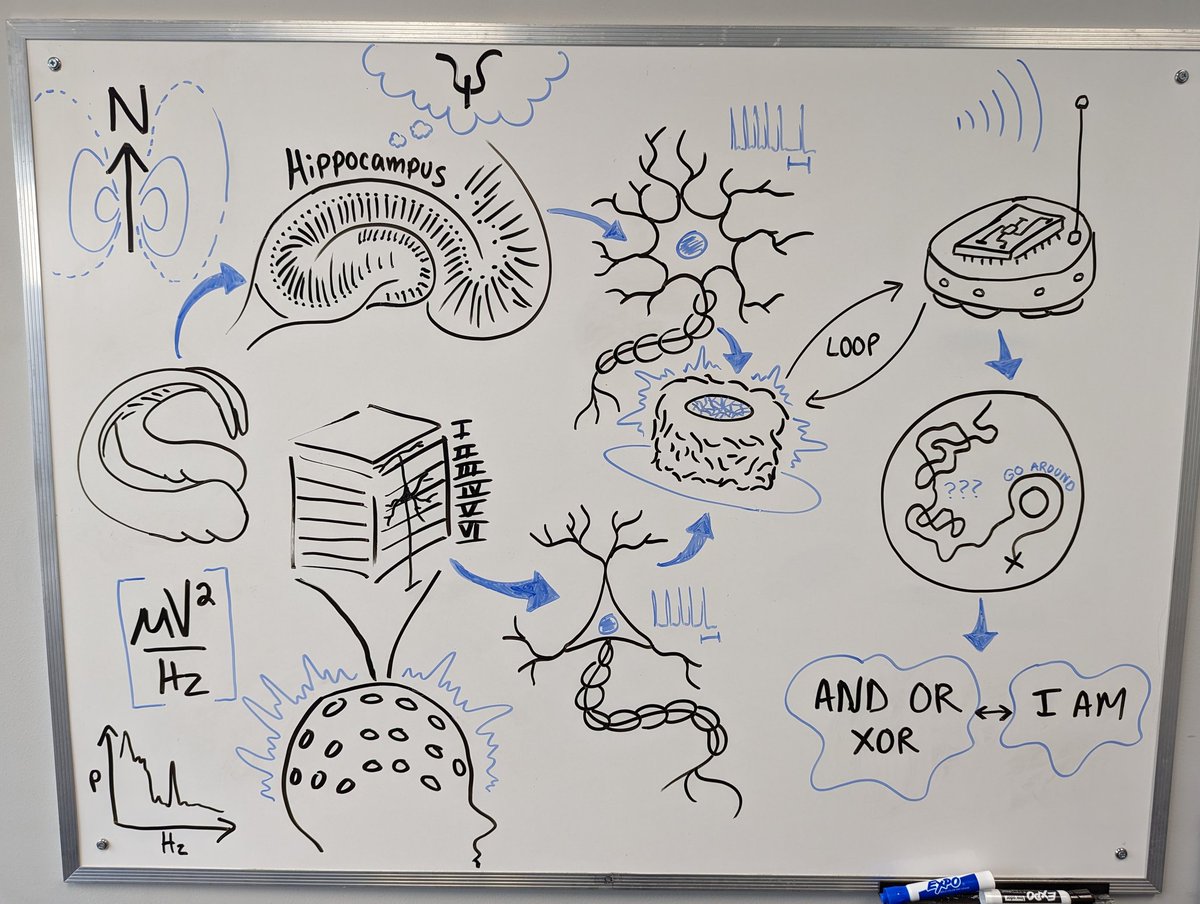 N
ψ
Hippocampus
LOOP
I
II
III
IV
V
VI
???
GO AROUND
X
[μV²
Hz]
AND OR
XOR
I AM
P
Hz
EXPO
EXPO